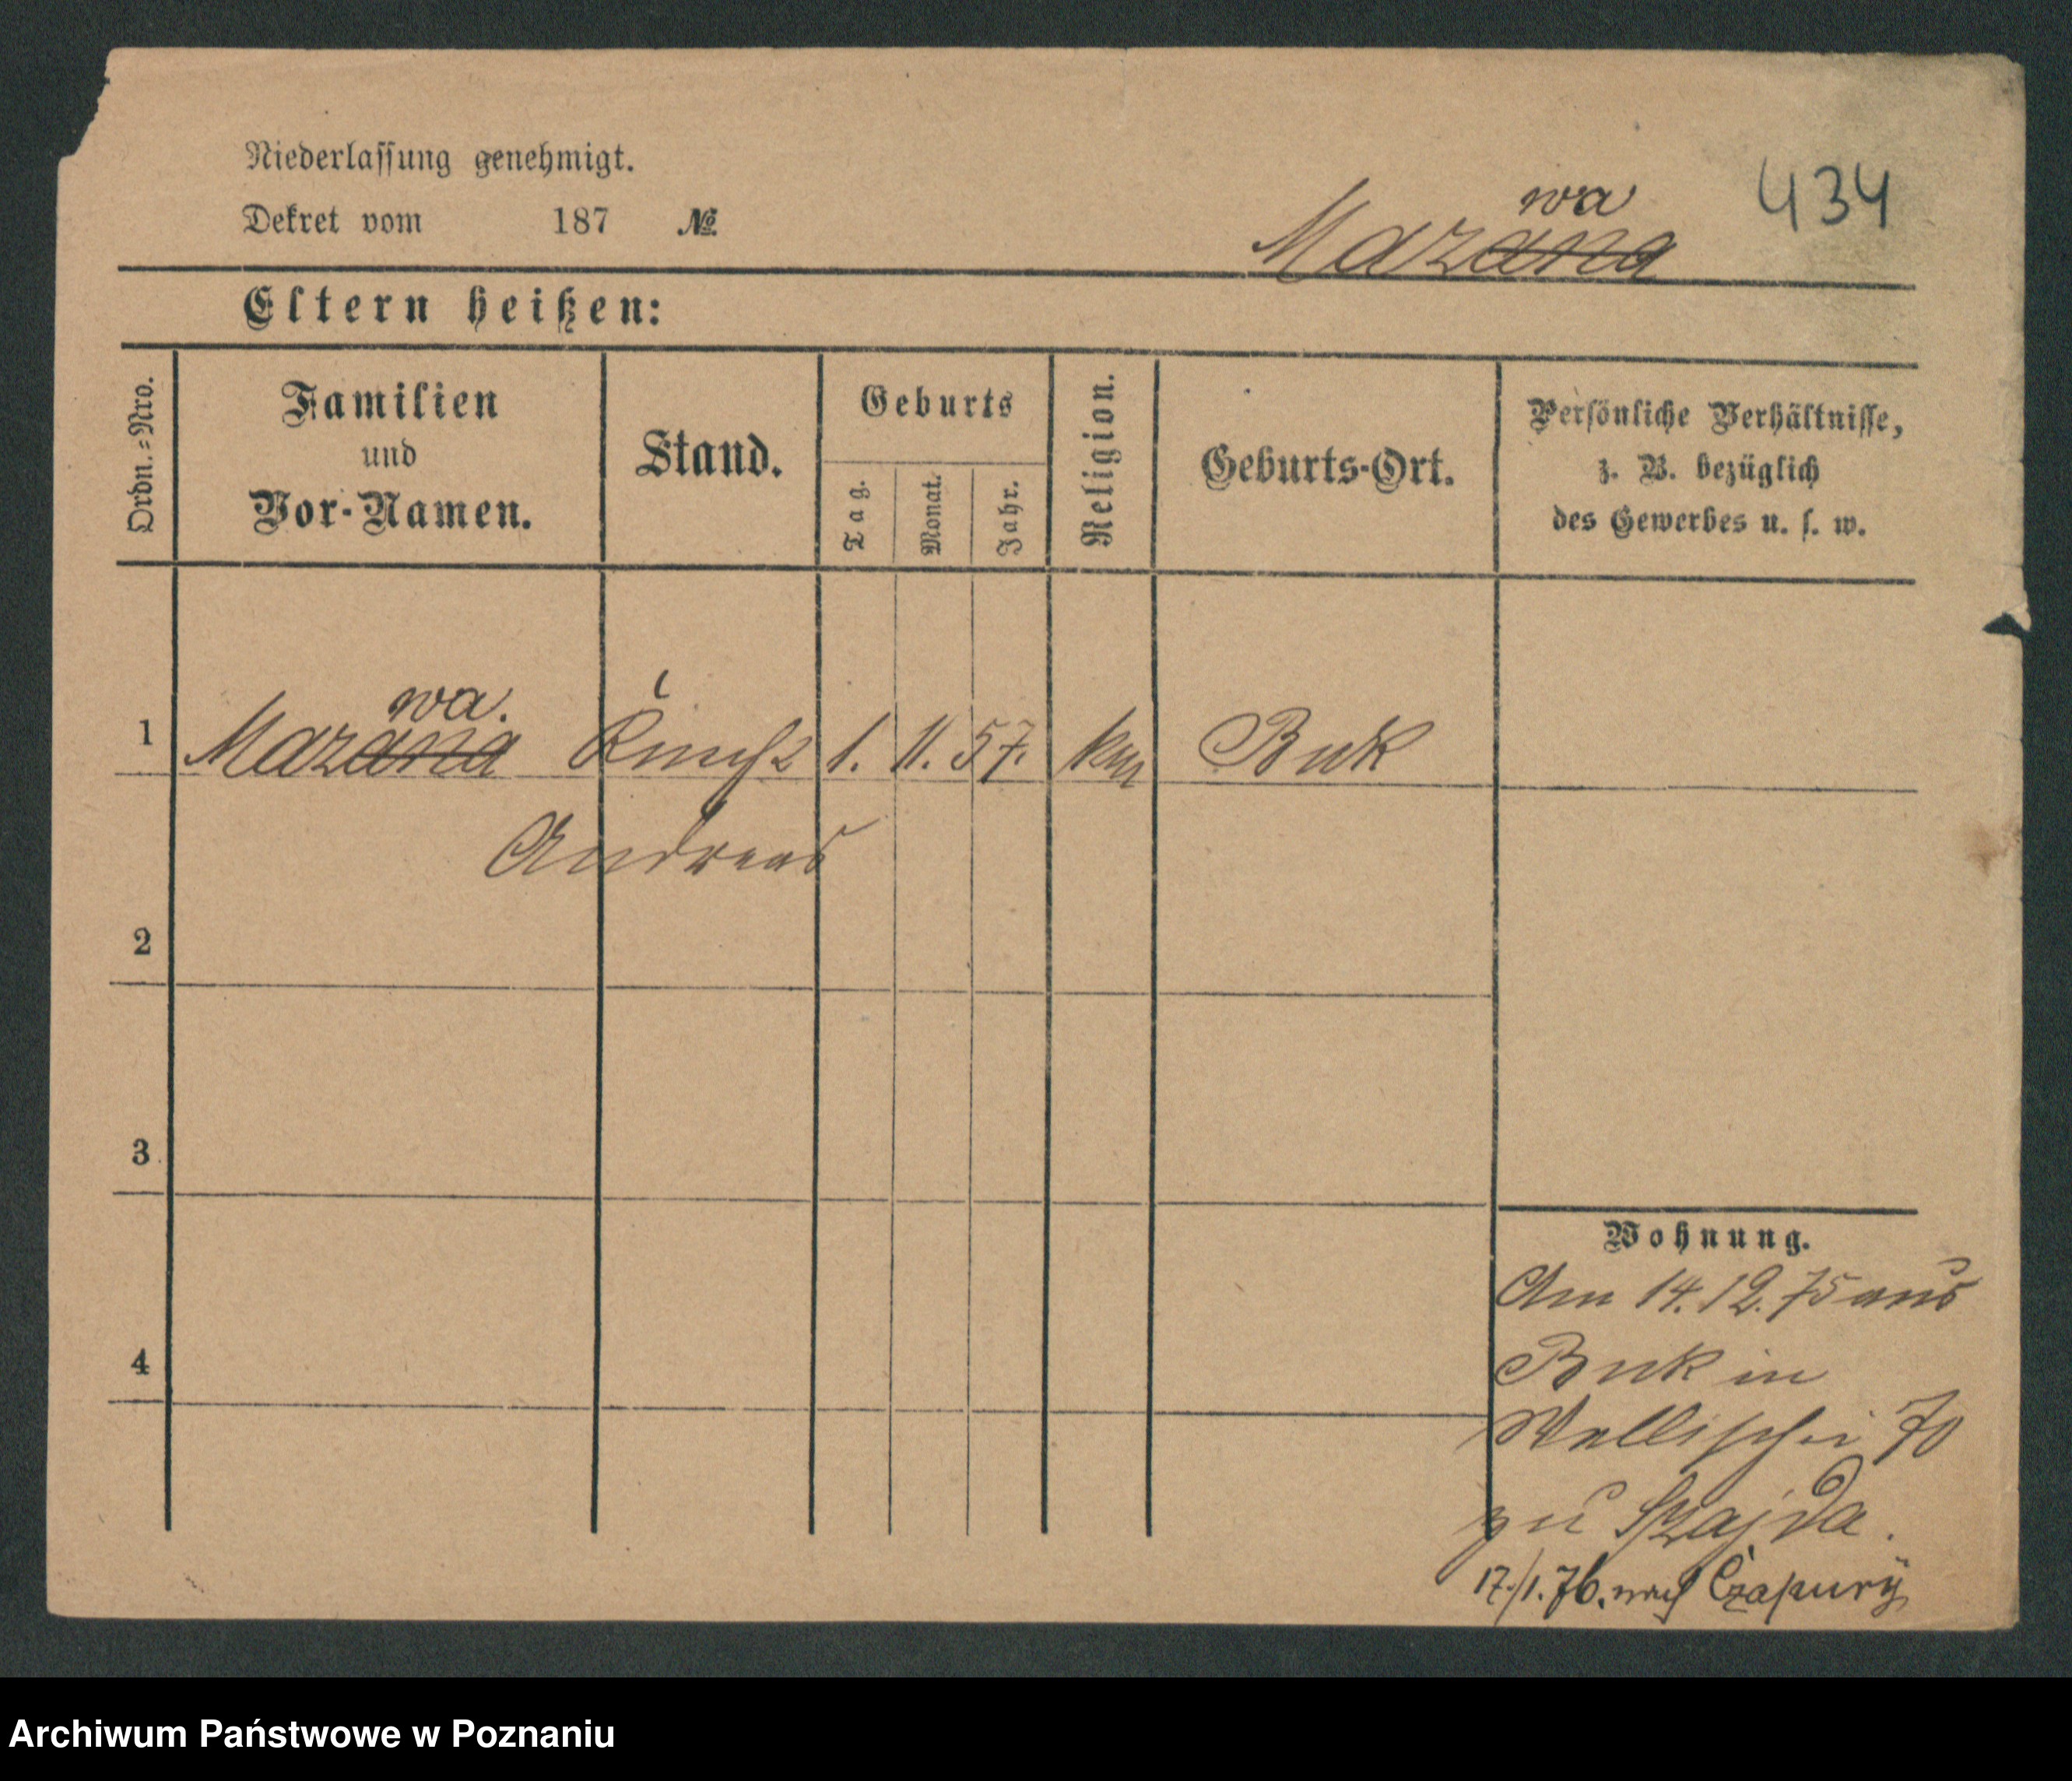 Niederlassung genehmigt.
Dekret vom 187 №
wa
434
Mazana
Eltern heißen:
Ordn.-Nro.
Familien
und
Vor-Namen.
Stand.
Geburts
Tag.
Monat.
Jahr.
Religion.
Geburts-Ort.
Persönliche Verhältnisse,
z. B. bezüglich
des Gewerbes u. s. w.
wa.
1 Mazana 1. 11. 57. Buk
Andreas
2
3
4
Wohnung.
Am 14.12.75 aus
Buk in
Wallischei 70
zu Szajda.
17./1.76. nach Czapury
Archiwum Państwowe w Poznaniu